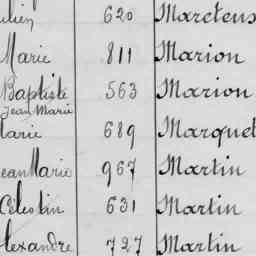 ulien 620 Mareteus
Marie 811 Marion
Baptiste 563 Marion
Jean Marie
Marie 689 Marquet
Jean Marie 967 Martin
Célestin 631 Martin
lexandre 727 Martin